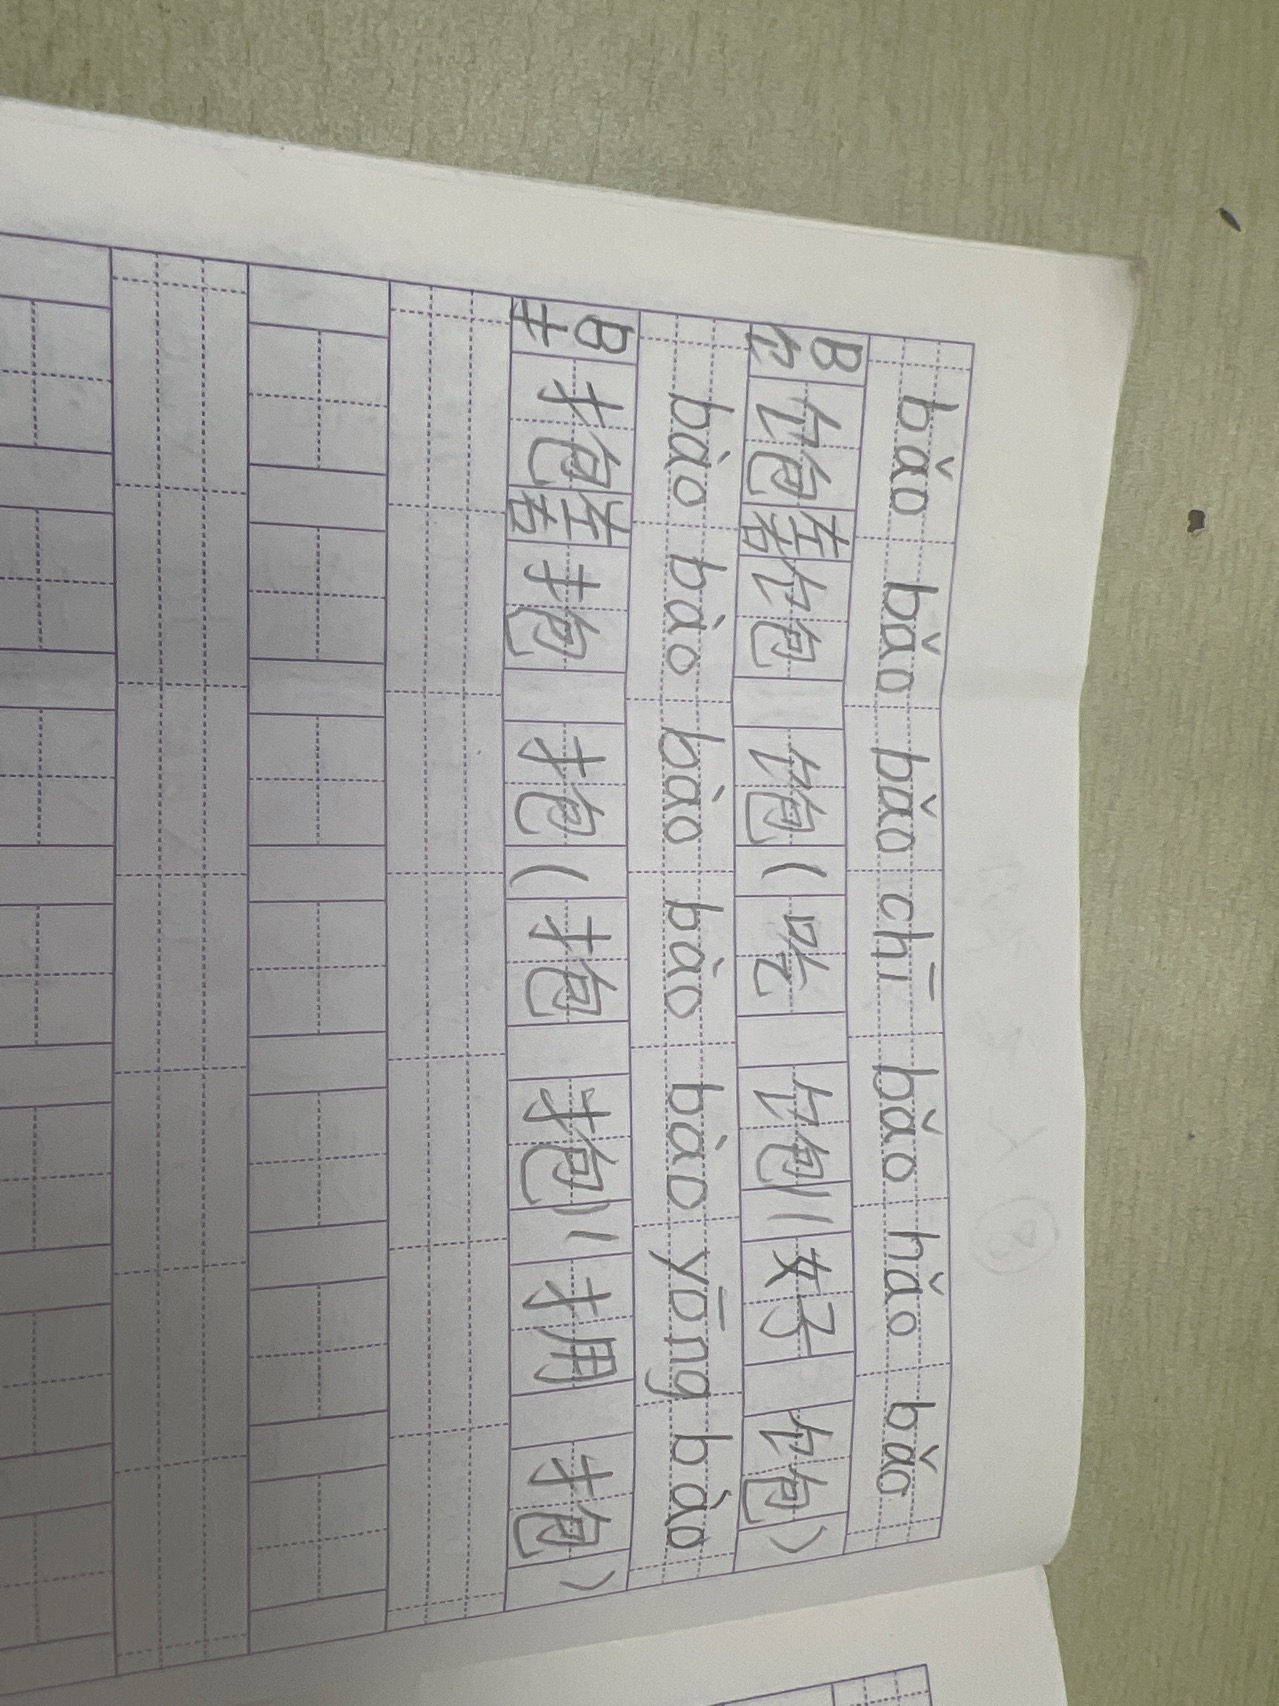 bǎo bǎo bǎo chī bǎo hǎo bǎo
B饣饱左右饱饱(吃饱)(好饱)
bào bào bào bào bào yōng bào
B扌抱左右抱抱(抱抱)(拥抱)